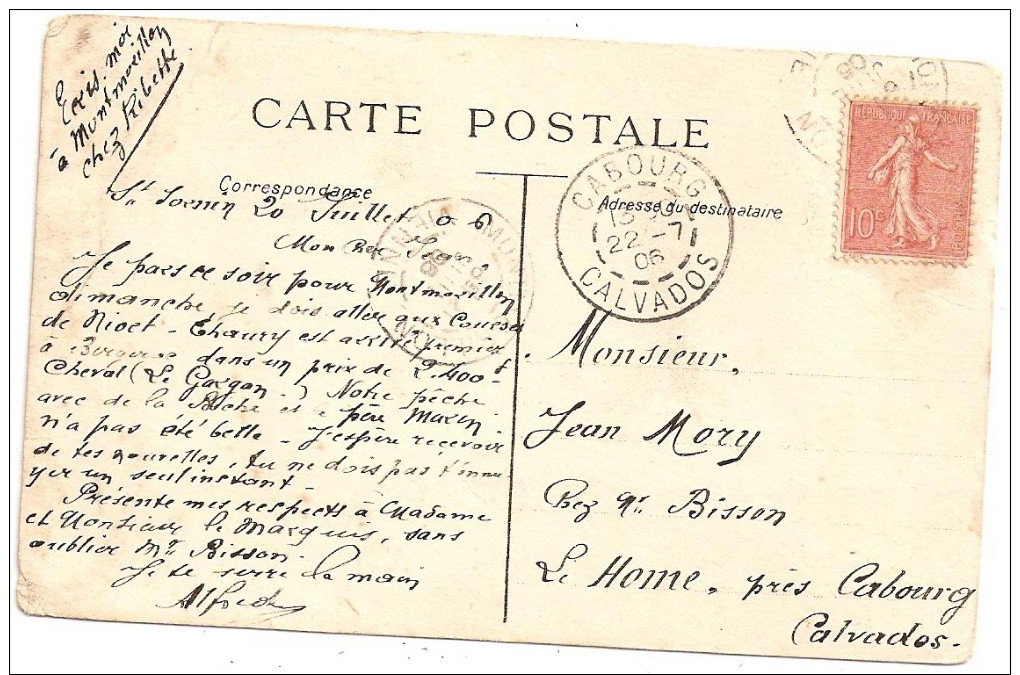 Ecris-moi
à Montmorillon
chez Ribette
CARTE POSTALE
Correspondance
Adresse du destinataire
REPUBLIQUE FRANÇAISE
10c
POSTES
CABOURG
22-7
06
CALVADOS
St Sornin 20 Juillet 06
Mon cher Jean,
Je pars ce soir pour Montmorillon
dimanche, je dois aller aux Courses
de Niort - Thaury est arrivé premier
à dans un prix de 2.400f
Cheval (Le Gargan.) Notre pêche
avec de la et le père Marin
n'a pas été belle - J'espère recevoir
de tes nouvelles, tu ne dois pas t'ennu
yer un seul instant -
Présente mes respects à Madame
et Monsieur le Marquis, sans
oublier Mr Bisson.
Je te serre la main
Alfred
Monsieur,
Jean Mory
Chez Mr Bisson
Le Home, près Cabourg
Calvados.